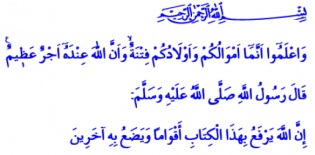 بِسْمِ اللهِ الرَّحْمٰنِ الرَّحِيمِ
وَاعْلَمُوا اَنَّمَا اَمْوَالُكُمْ وَاَوْلَادُكُمْ فِتْنَةٌۙ وَاَنَّ اللهَ عِنْدَهُٓ اَجْرٌ عَظٖيمٌ
قَالَ رَسُولُ اللَّهِ صَلَّى اللَّهُ عَلَيْهِ وَسَلَّمَ:
إِنَّ اللَّهَ يَرْفَعُ بِهَذَا الْكِتَابِ أَقْوَامًا وَيَضَعُ بِهِ آخَرِينَ